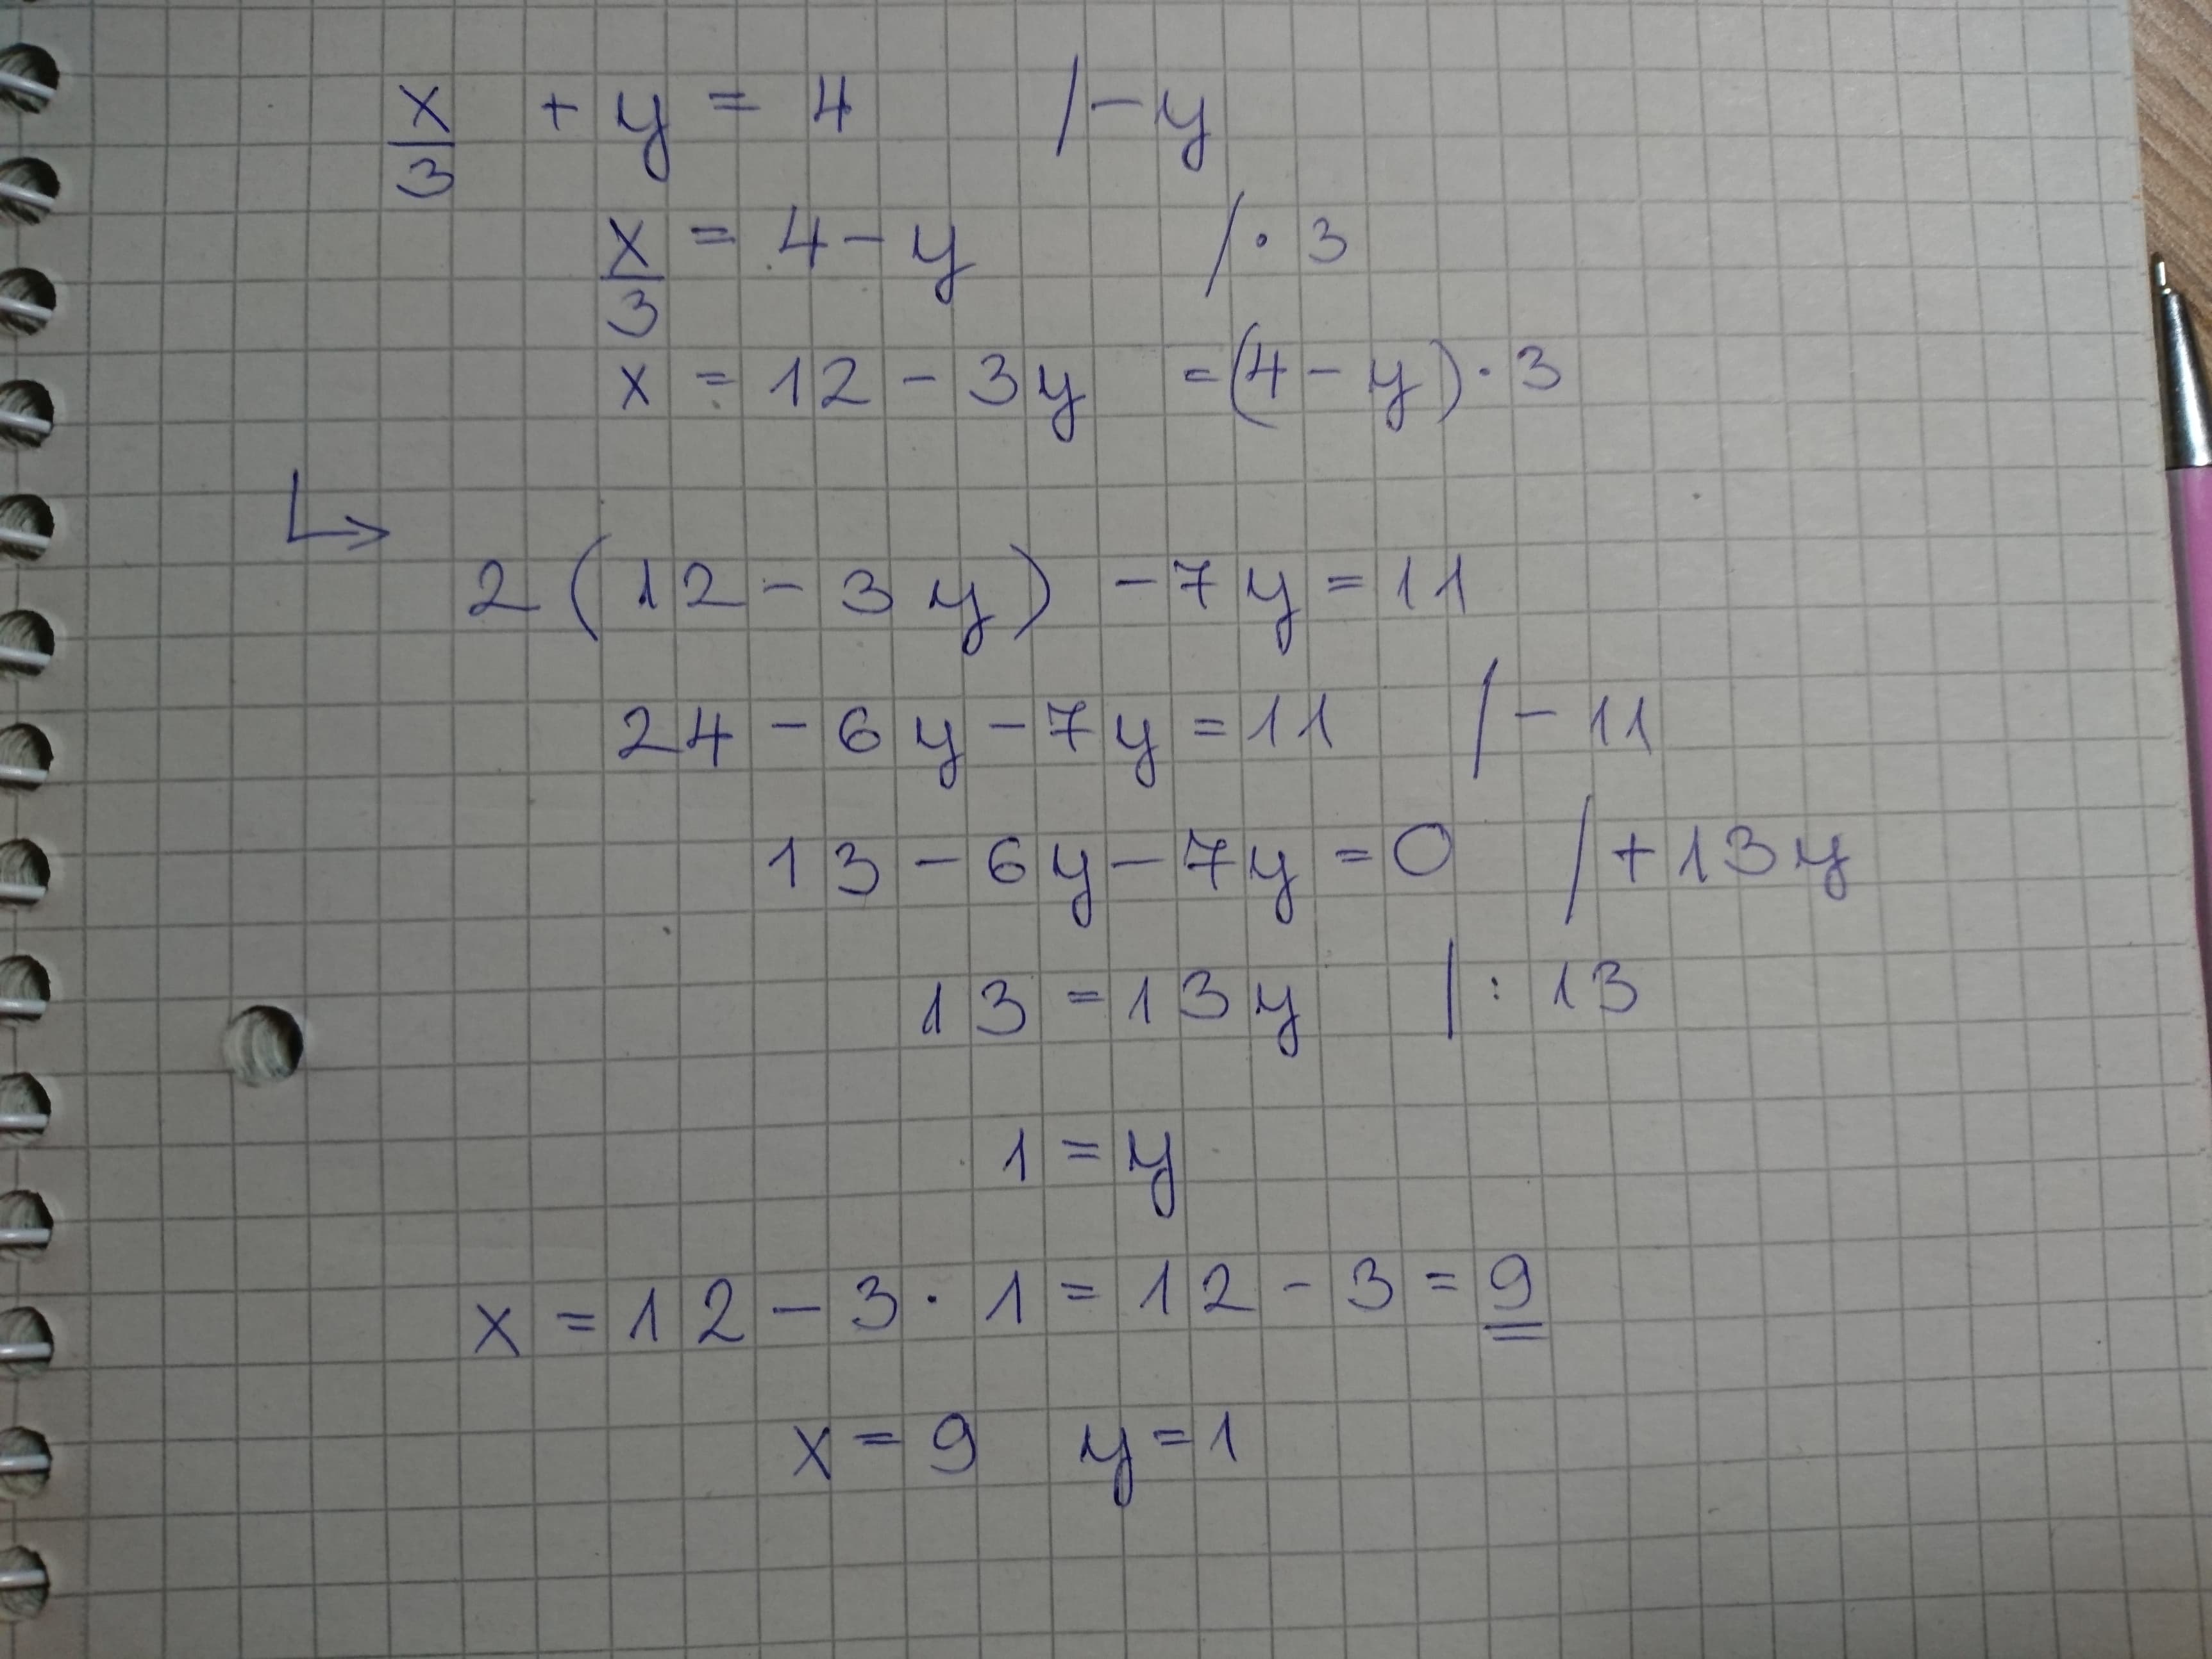 x/3 + y = 4 /-y
x/3 = 4 - y /· 3
x = 12 - 3y = (4 - y) · 3
↳ 2(12 - 3y) - 7y = 11
24 - 6y - 7y = 11 /- 11
13 - 6y - 7y = 0 /+ 13y
13 = 13y |: 13
1 = y
x = 12 - 3 · 1 = 12 - 3 = 9
x = 9 y = 1